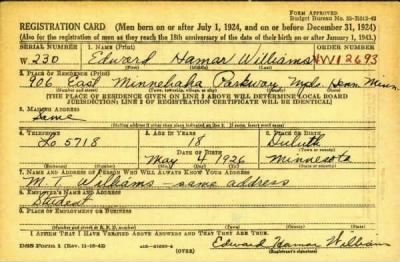 FORM APPROVED
Budget Bureau No.
REGISTRATION CARD (Men born on or after July 1, 1924, and on or before December 31, 1924)
(Also for the registration of men as they reach the 18th anniversary of the date of their birth on or after January 1, 1943.)
SERIAL NUMBER 1. NAME (Print) ORDER NUMBER
W 230 Edward Hamar Williams W12693
(First) (Middle) (Last)
2. PLACE OF RESIDENCE (Print)
906 East Minnehaha Parkway Mpls Henn. Minn.
[THE PLACE OF RESIDENCE GIVEN ON LINE 2 ABOVE WILL DETERMINE LOCAL BOARD
JURISDICTION; LINE 2 OF REGISTRATION CERTIFICATE WILL BE IDENTICAL]
3. MAILING ADDRESS
Same
4. TELEPHONE 5. AGE IN YEARS 6. PLACE OF BIRTH
Lo 5718 18 Duluth
DATE OF BIRTH
May 4 1926 Minnesota
7. NAME AND ADDRESS OF PERSON WHO WILL ALWAYS KNOW YOUR ADDRESS
M T Williams - same address
8. EMPLOYER'S NAME AND ADDRESS
Student
9. PLACE OF EMPLOYMENT OR BUSINESS
I AFFIRM THAT I HAVE VERIFIED ABOVE ANSWERS AND THAT THEY ARE TRUE.
DSS Form 1 (Over) Edward Hamar William
(Registrant's signature)